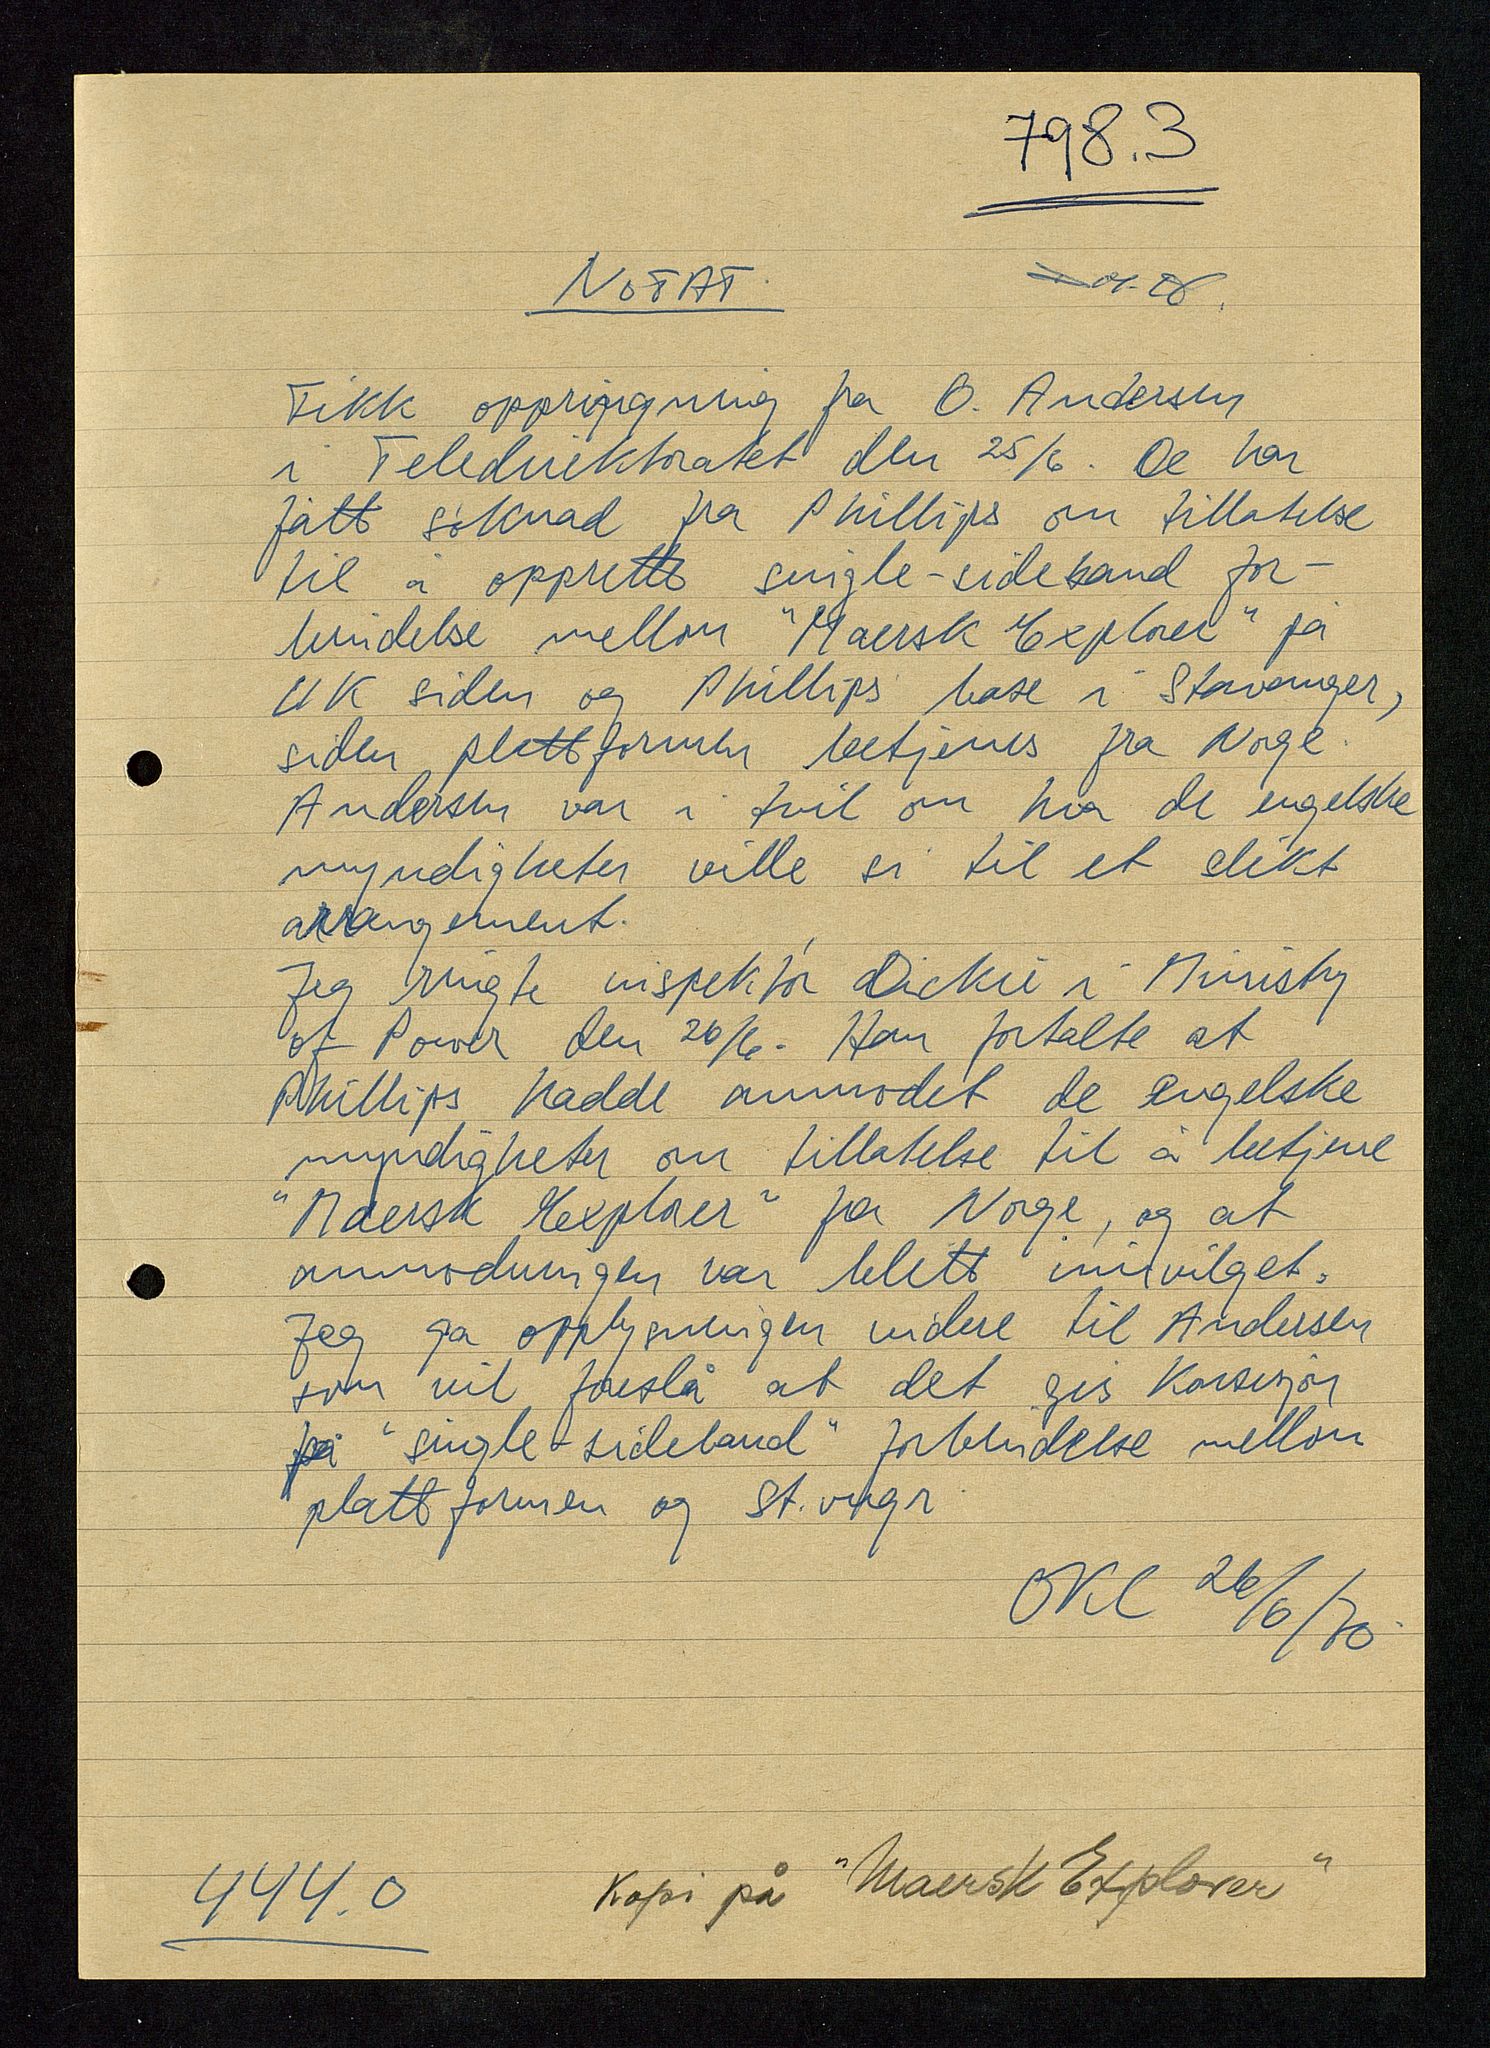 798.3
NOTAT.
Fikk oppringning fra O. Andersen
i Teledirektoratet den 25/6. De har
fått søknad fra Phillips om tillatelse
til å opprette single-sideband for-
bindelse mellom "Maersk Explorer" på
UK siden og Phillips' base i Stavanger,
siden plattformen betjenes fra Norge.
Andersen var i tvil om hva de engelske
myndigheter ville si til et slikt
arrangement.
Jeg ringte inspektør Dickie i Ministry
of Power den 26/6. Han fortalte at
Phillips hadde anmodet de engelske
myndigheter om tillatelse til å betjene
"Maersk Explorer" fra Norge, og at
anmodningen var blitt innvilget.
Jeg ga opplysningen videre til Andersen
som vil foreslå at det gis konsesjon
på "single-sideband" forbindelse mellom
plattformen og St.vngr.
OKL 26/6/70
444.0
Kopi på "Maersk Explorer"